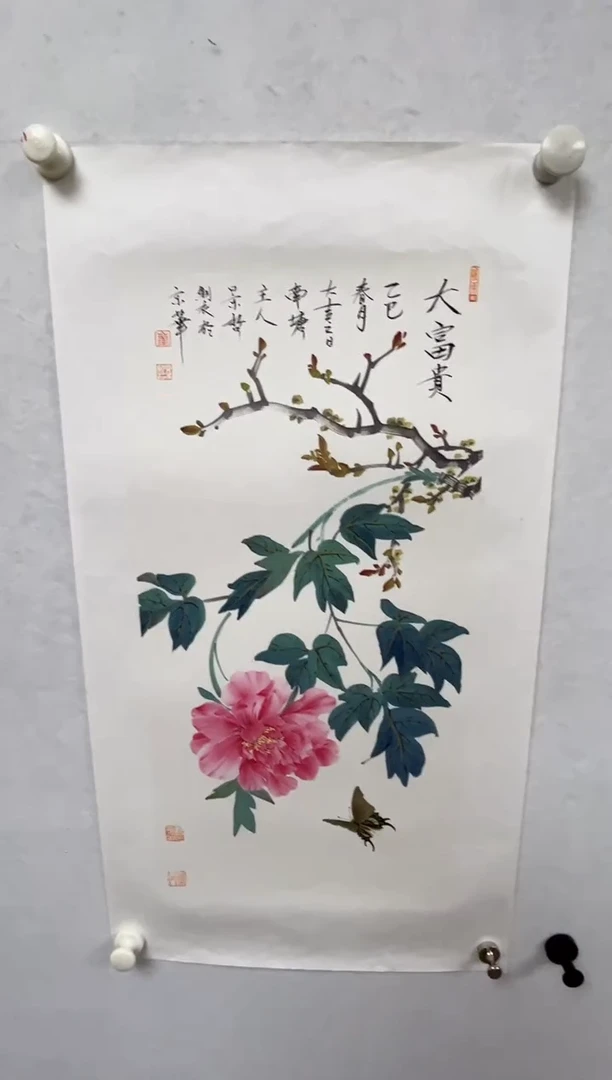 大富貴
乙巳
春月
大吉之日
南塘
主人
景哲
製衣於
京華